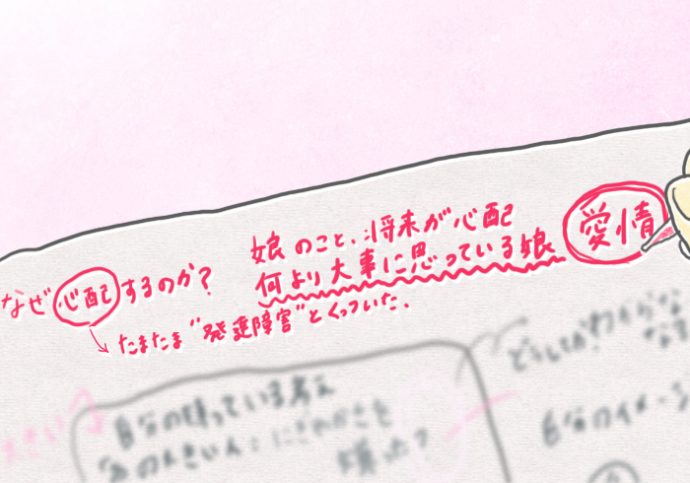 なぜ心配するのか?
たまたま“発達障害”とくっついた.
娘のこと、将来が心配
何より大事に思っている娘
愛情
自分の持っている考え
どうしてか?わからな
自分のイメージ
嫌った?